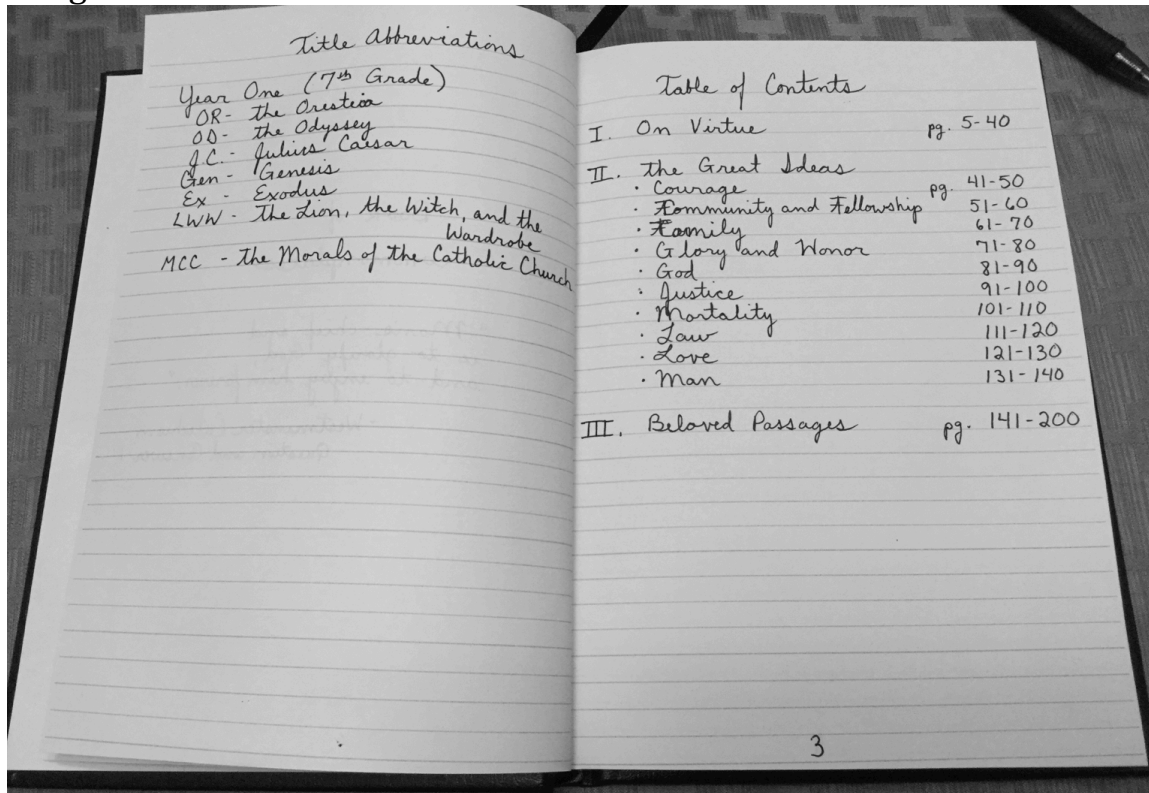 Title Abbreviations
Year One (7th Grade)
OR- the Oresteia
OD- the Odyssey
J.C.- Julius Caesar
Gen- Genesis
Ex- Exodus
LWW- The Lion, the Witch, and the
Wardrobe
MCC - the Morals of the Catholic Church
Table of Contents
I. On Virtue pg. 5-40
II. The Great Ideas
· Courage pg. 41-50
· Community and Fellowship 51-60
· Family 61-70
· Glory and Honor 71-80
· God 81-90
· Justice 91-100
· Mortality 101-110
· Law 111-120
· Love 121-130
· Man 131-140
III. Beloved Passages pg. 141-200
3